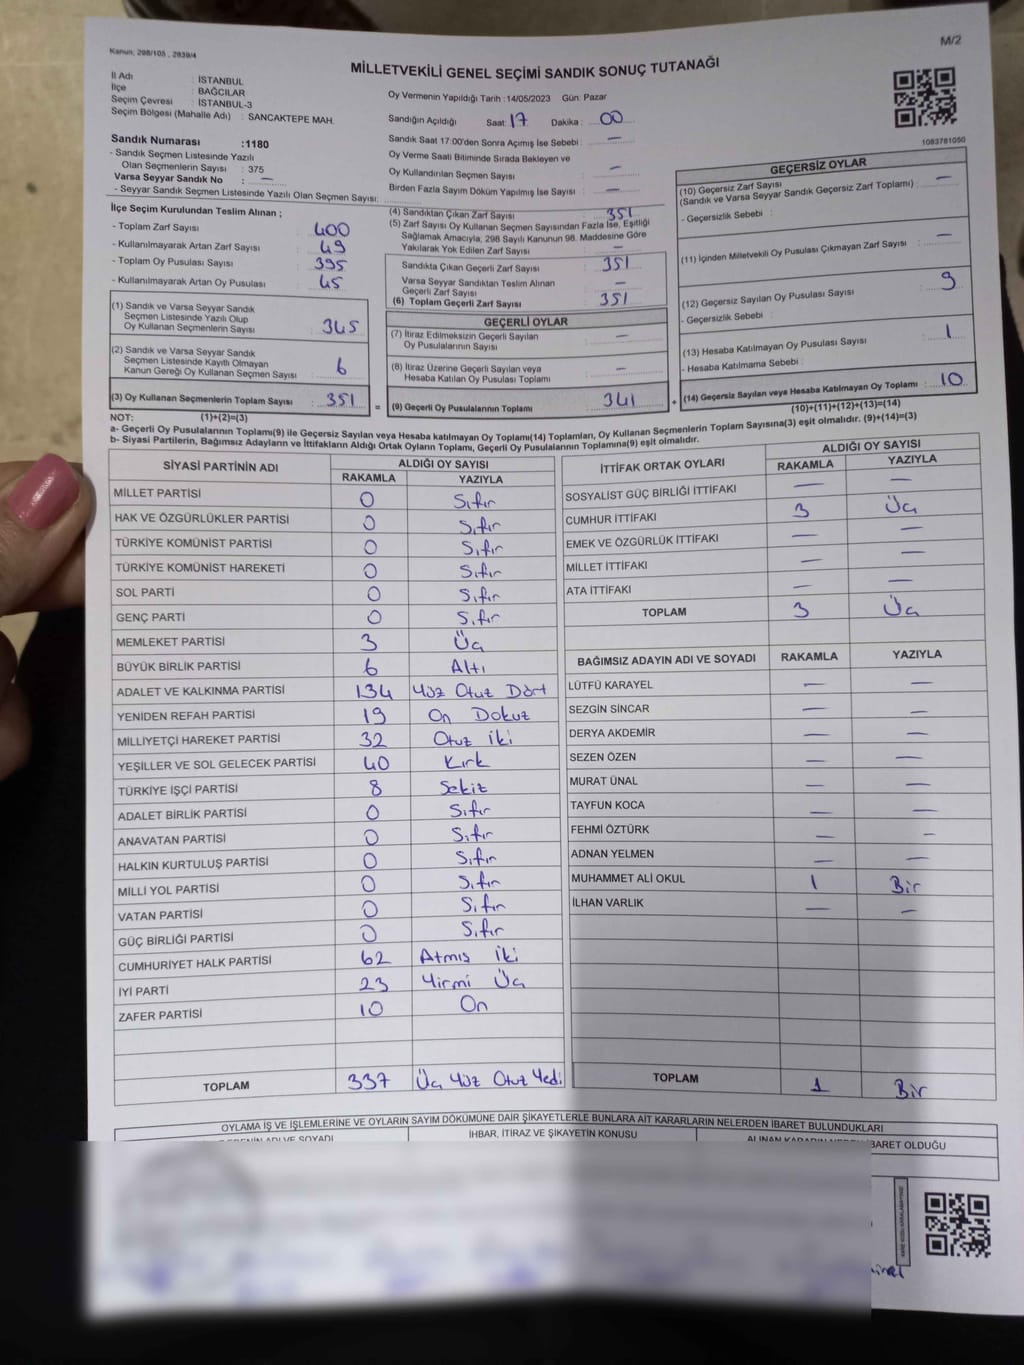 Kanun: 298/105 , 2839/4
M/2
MİLLETVEKİLİ GENEL SEÇİMİ SANDIK SONUÇ TUTANAĞI
İl Adı : İSTANBUL
İlçe : BAĞCILAR
Seçim Çevresi : İSTANBUL-3
Seçim Bölgesi (Mahalle Adı) : SANCAKTEPE MAH.
Sandık Numarası :1180
- Sandık Seçmen Listesinde Yazılı
Olan Seçmenlerin Sayısı : 375
Varsa Seyyar Sandık No : —
- Seyyar Sandık Seçmen Listesinde Yazılı Olan Seçmen Sayısı:
Oy Vermenin Yapıldığı Tarih :14/05/2023 Gün: Pazar
Sandığın Açıldığı Saat: 17 Dakika : 00
Sandık Saat 17:00'den Sonra Açımış İse Sebebi : —
Oy Verme Saati Bitiminde Sırada Bekleyen ve
Oy Kullandırılan Seçmen Sayısı : —
Birden Fazla Sayım Döküm Yapılmış İse Sayısı : —
1083781050
İlçe Seçim Kurulundan Teslim Alınan ;
- Toplam Zarf Sayısı : 400
- Kullanılmayarak Artan Zarf Sayısı : 49
- Toplam Oy Pusulası Sayısı : 395
- Kullanılmayarak Artan Oy Pusulası : 45
(1) Sandık ve Varsa Seyyar Sandık
Seçmen Listesinde Yazılı Olup
Oy Kullanan Seçmenlerin Sayısı : 345
(2) Sandık ve Varsa Seyyar Sandık
Seçmen Listesinde Kayıtlı Olmayan
Kanun Gereği Oy Kullanan Seçmen Sayısı : 6
(3) Oy Kullanan Seçmenlerin Toplam Sayısı : 351
(4) Sandıktan Çıkan Zarf Sayısı : 351
(5) Zarf Sayısı Oy Kullanan Seçmen Sayısından Fazla İse, Eşitliği
Sağlamak Amacıyla, 298 Sayılı Kanunun 98. Maddesine Göre
Yakılarak Yok Edilen Zarf Sayısı : —
Sandıkta Çıkan Geçerli Zarf Sayısı : 351
Varsa Seyyar Sandıktan Teslim Alınan
Geçerli Zarf Sayısı : —
(6) Toplam Geçerli Zarf Sayısı : 351
GEÇERLİ OYLAR
(7) İtiraz Edilmeksizin Geçerli Sayılan
Oy Pusulalarının Sayısı : —
(8) İtiraz Üzerine Geçerli Sayılan veya
Hesaba Katılan Oy Pusulası Toplamı : —
= (9) Geçerli Oy Pusulalarının Toplamı : 341
GEÇERSİZ OYLAR
(10) Geçersiz Zarf Sayısı : —
(Sandık ve Varsa Seyyar Sandık Geçersiz Zarf Toplamı)
- Geçersizlik Sebebi :
(11) İçinden Milletvekili Oy Pusulası Çıkmayan Zarf Sayısı : —
(12) Geçersiz Sayılan Oy Pusulası Sayısı : 9
- Geçersizlik Sebebi :
(13) Hesaba Katılmayan Oy Pusulası Sayısı : 1
- Hesaba Katılmama Sebebi :
+ (14) Geçersiz Sayılan veya Hesaba Katılmayan Oy Toplamı : 10
NOT: (1)+(2)=(3) (10)+(11)+(12)+(13)=(14)
a- Geçerli Oy Pusulalarının Toplamı(9) ile Geçersiz Sayılan veya Hesaba katılmayan Oy Toplamı(14) Toplamları, Oy Kullanan Seçmenlerin Toplam Sayısına(3) eşit olmalıdır. (9)+(14)=(3)
b- Siyasi Partilerin, Bağımsız Adayların ve İttifakların Aldığı Ortak Oyların Toplamı, Geçerli Oy Pusulalarının Toplamına(9) eşit olmalıdır.
SİYASİ PARTİNİN ADI ALDIĞI OY SAYISI
RAKAMLA YAZIYLA
MİLLET PARTİSİ 0 Sıfır
HAK VE ÖZGÜRLÜKLER PARTİSİ 0 Sıfır
TÜRKİYE KOMÜNİST PARTİSİ 0 Sıfır
TÜRKİYE KOMÜNİST HAREKETİ 0 Sıfır
SOL PARTİ 0 Sıfır
GENÇ PARTİ 0 Sıfır
MEMLEKET PARTİSİ 3 Üç
BÜYÜK BİRLİK PARTİSİ 6 Altı
ADALET VE KALKINMA PARTİSİ 134 Yüz Otuz Dört
YENİDEN REFAH PARTİSİ 19 On Dokuz
MİLLİYETÇİ HAREKET PARTİSİ 32 Otuz iki
YEŞİLLER VE SOL GELECEK PARTİSİ 40 Kırk
TÜRKİYE İŞÇİ PARTİSİ 8 Sekiz
ADALET BİRLİK PARTİSİ 0 Sıfır
ANAVATAN PARTİSİ 0 Sıfır
HALKIN KURTULUŞ PARTİSİ 0 Sıfır
MİLLİ YOL PARTİSİ 0 Sıfır
VATAN PARTİSİ 0 Sıfır
GÜÇ BİRLİĞİ PARTİSİ 0 Sıfır
CUMHURİYET HALK PARTİSİ 62 Atmış iki
İYİ PARTİ 23 Yirmi Üç
ZAFER PARTİSİ 10 On
TOPLAM 337 Üç Yüz Otuz Yedi
İTTİFAK ORTAK OYLARI ALDIĞI OY SAYISI
RAKAMLA YAZIYLA
SOSYALİST GÜÇ BİRLİĞİ İTTİFAKI — —
CUMHUR İTTİFAKI 3 Üç
EMEK VE ÖZGÜRLÜK İTTİFAKI — —
MİLLET İTTİFAKI — —
ATA İTTİFAKI — —
TOPLAM 3 Üç
BAĞIMSIZ ADAYIN ADI VE SOYADI RAKAMLA YAZIYLA
LÜTFÜ KARAYEL — —
SEZGİN SİNCAR — —
DERYA AKDEMİR — —
SEZEN ÖZEN — —
MURAT ÜNAL — —
TAYFUN KOCA — —
FEHMİ ÖZTÜRK — —
ADNAN YELMEN — —
MUHAMMET ALİ OKUL 1 Bir
İLHAN VARLIK — —
TOPLAM 1 Bir
OYLAMA İŞ VE İŞLEMLERİNE VE OYLARIN SAYIM DÖKÜMÜNE DAİR ŞİKAYETLERLE BUNLARA AİT KARARLARIN NELERDEN İBARET BULUNDUKLARI
ADI VE SOYADI İHBAR, İTİRAZ VE ŞİKAYETİN KONUSU ALINAN KARARIN NEDEN İBARET OLDUĞU